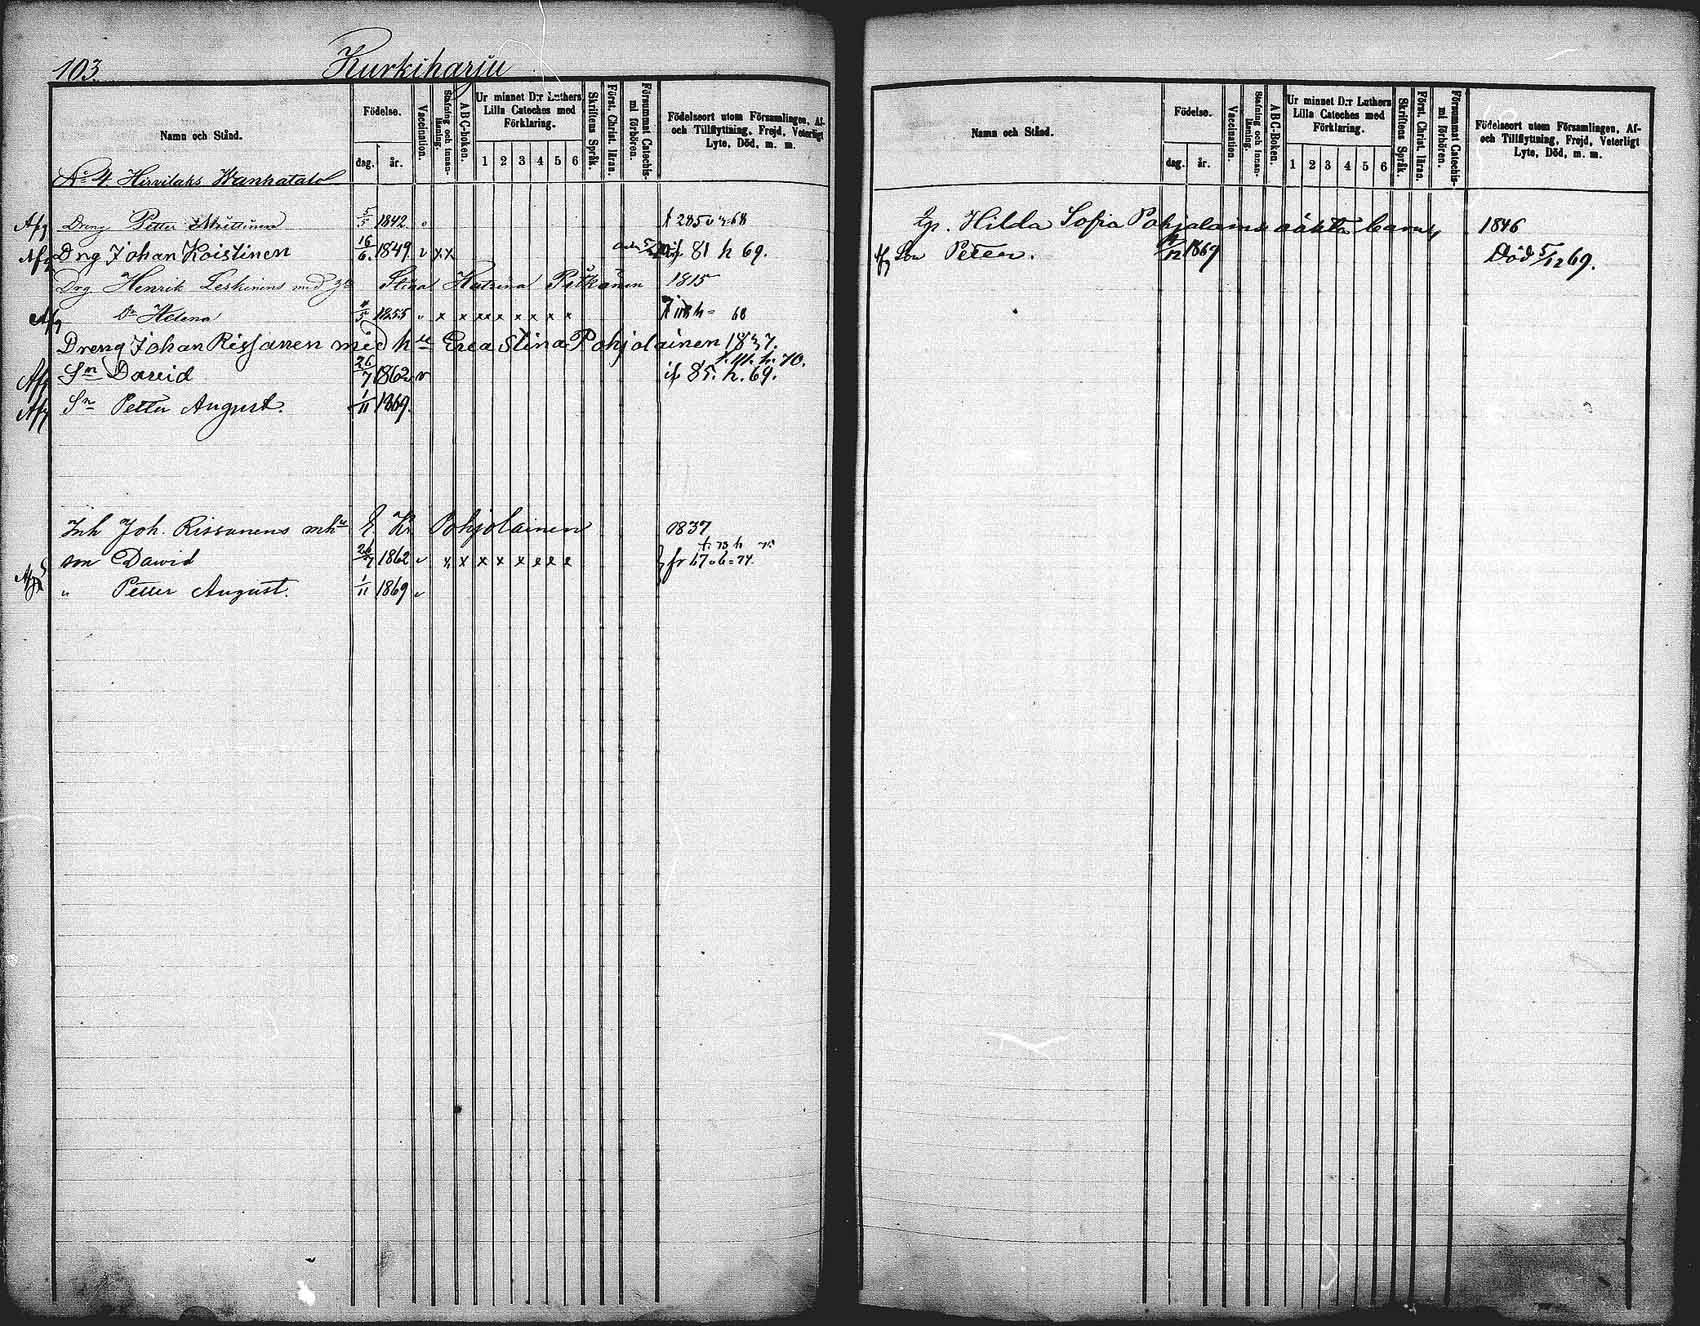 103. Kurkiharju
Namn och Stånd.
Födelse.
dag. år.
Vaccination.
Stafning och innanläsning.
ABC-boken.
Ur minnet D:r Luthers Lilla Cateches med Förklaring.
1 2 3 4 5 6
Skriftens Språk.
Först. Christ. läran.
Försummat Catechismi förhören.
Födelseort utom Församlingen, Af- och Tillflyttning, Frejd, Veterligt Lyte, Död, m. m.
Hirvilaks Wanhatalo
Dreng Petter 5/5 1842 68
Drg Johan Koistinen 16/6 1849 v x x 81 h 69.
Drg Henrik Leskinens med Stina Katrina Pitkänen 1815
Dr Helena 1855 v x x x x x x x x 68
Dreng Johan Rissanen med h Eva Stina Pohjolainen 1837.
Sn David 26/7 1862 v if 85. h. 69.
Sn Petter August. 1/11 1869.
Inh Joh. Rissanens m hu E Kr Pohjolainen 1837
son Dawid 26/7 1862 v x x x x x x x x
" Petter August. 1/11 1869 v
Namn och Stånd.
Födelse.
dag. år.
Vaccination.
Stafning och innanläsning.
ABC-boken.
Ur minnet D:r Luthers Lilla Cateches med Förklaring.
1 2 3 4 5 6
Skriftens Språk.
Först. Christ. läran.
Försummat Catechismi förhören.
Födelseort utom Församlingen, Af- och Tillflyttning, Frejd, Veterligt Lyte, Död, m. m.
Hilda Sofia Pohjolains oäkta barn 1846
Son Peter. 1869 Död 5/12 69.